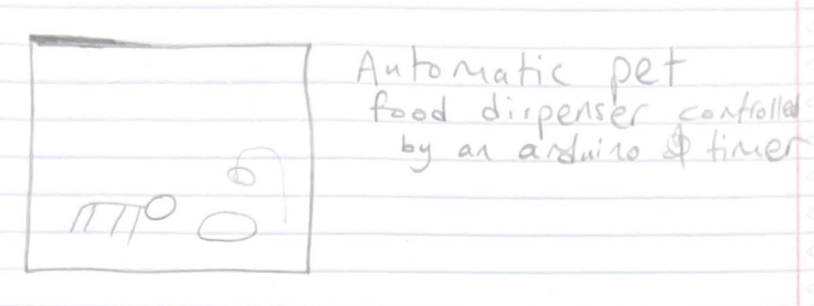 Automatic pet
food dispenser controlled
by an arduino & timer